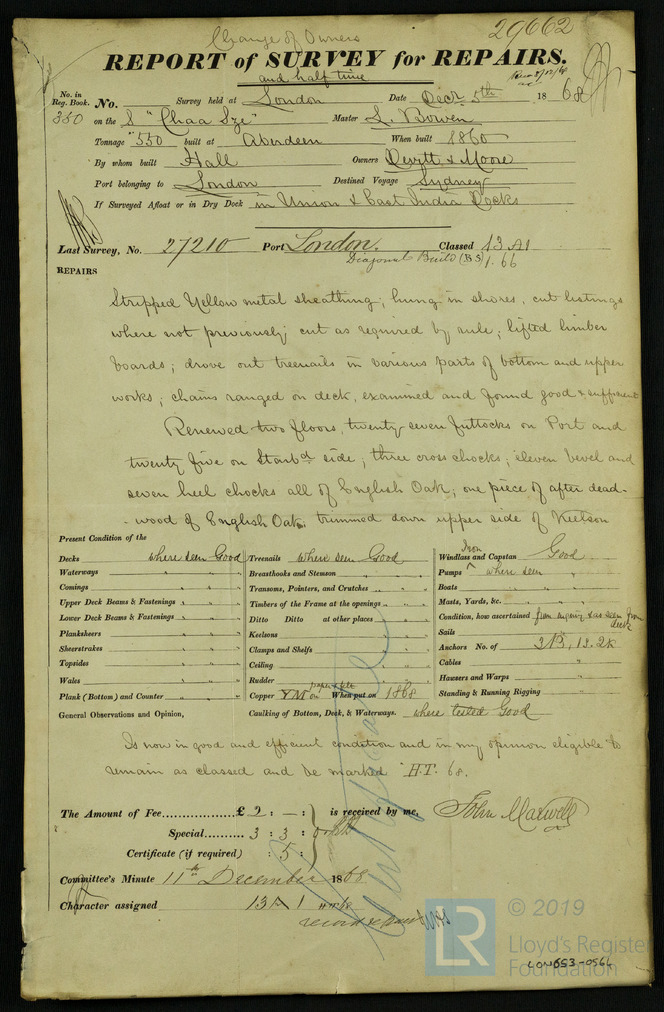 Change of Owners
29662
REPORT of SURVEY for REPAIRS.
and half time
No. in Reg. Book. No. Survey held at London Date Decr 5th 1868
350 on the S "Chaa Sze" Master L. Bowen
Tonnage 550 built at Aberdeen When built 1860
By whom built Hall Owners Devitt & Moore
Port belonging to London Destined Voyage Sydney
If Surveyed Afloat or in Dry Dock in Union & East India Docks
Last Survey, No. 27210 Port London. Classed 13 A1
Diagonal Built (B S) 1.66
REPAIRS
Stripped Yellow metal sheathing; hung in shores, cut listings
where not previously cut as required by rule; lifted limber
boards; drove out treenails in various parts of bottom and upper
works; chains ranged on deck, examined and found good & sufficient
Renewed two floors, twenty-seven futtocks on Port and
twenty five on Starbd side; three cross chocks; eleven bevel and
seven heel chocks all of English Oak; one piece of after dead-
-wood of English Oak. trimmed down upper side of Keelson
Present Condition of the
Decks where seen Good Treenails where seen Good Windlass and Capstan Iron Good
Waterways " " Breasthooks and Stemson " " Pumps where seen "
Comings " " Transoms, Pointers, and Crutches " " Boats " "
Upper Deck Beams & Fastenings " " Timbers of the Frame at the openings " " Masts, Yards, &c. " "
Lower Deck Beams & Fastenings " " Ditto Ditto at other places " " Condition, how ascertained from deck
Planksheers " " Keelsons " " Sails "
Sheerstrakes " " Clamps and Shelfs " " Anchors No. of 3 B, 1 S. 2 K
Topsides " " Ceiling " " Cables "
Wales " " Rudder " " Hawsers and Warps "
Plank (Bottom) and Counter " " Copper YM on paper & felt When put on 1868 Standing & Running Rigging "
General Observations and Opinion, Caulking of Bottom, Deck, & Waterways. where tested Good
Is now in good and efficient condition and in my opinion eligible to
remain as classed and be marked H.T. 68.
The Amount of Fee £ 2 : - : is received by me, John Maxwell
Special 3 : 3 :
Certificate (if required) : 5 :
Committee's Minute 11th December 1868
Character assigned 13 A 1
© 2019
LR
Lloyd's Register
Foundation
LON653-0566